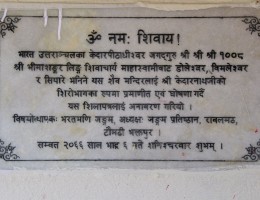 ॐ नमः शिवाय!
भारत उत्तराञ्चलका केदारपीठाधीश्वर जगद्गुरु श्री श्री श्री १००८
श्री भीमाशङ्कर लिङ्ग शिवाचार्य महास्वामीबाट डोलेश्वर, विमलेश्वर
र सिपारे मनिने यस शैव मन्दिरलाई श्री केदारनाथजीको
शिरोभागका रुपमा प्रमाणीत एवं घोषणा गर्दै
यस शिलापत्रलाई अनावरण गरियो ।
विषयोत्थापकः भरतमणि जङ्गम, अध्यक्षः जङ्गम प्रतिष्ठान,
टौमढी भक्तपुर ।
सम्वत २०६६ साल भाद्र ६ गते शनिश्चरवार शुभम् ।